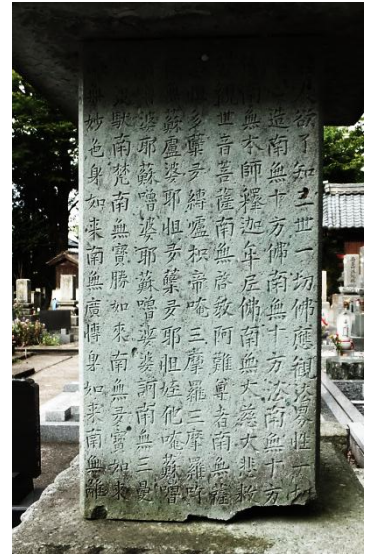 人欲了知三世一切佛應觀法界性一切
造南無十方佛南無十方法南無十方
南無本師釋迦牟尼佛南無大慈大悲救
世音菩薩南無啓教阿難尊者南無薩
多孽多縛嚧枳帝唵三摩羅三摩羅吽
蘇盧婆耶怛多蘖多耶怛姪他唵蘇噜
婆耶蘇噜婆耶蘇噜婆婆訶南無三曼
馱南梵南無寶勝如來南無多寶如来
妙色身如来南無廣博身如来南無離